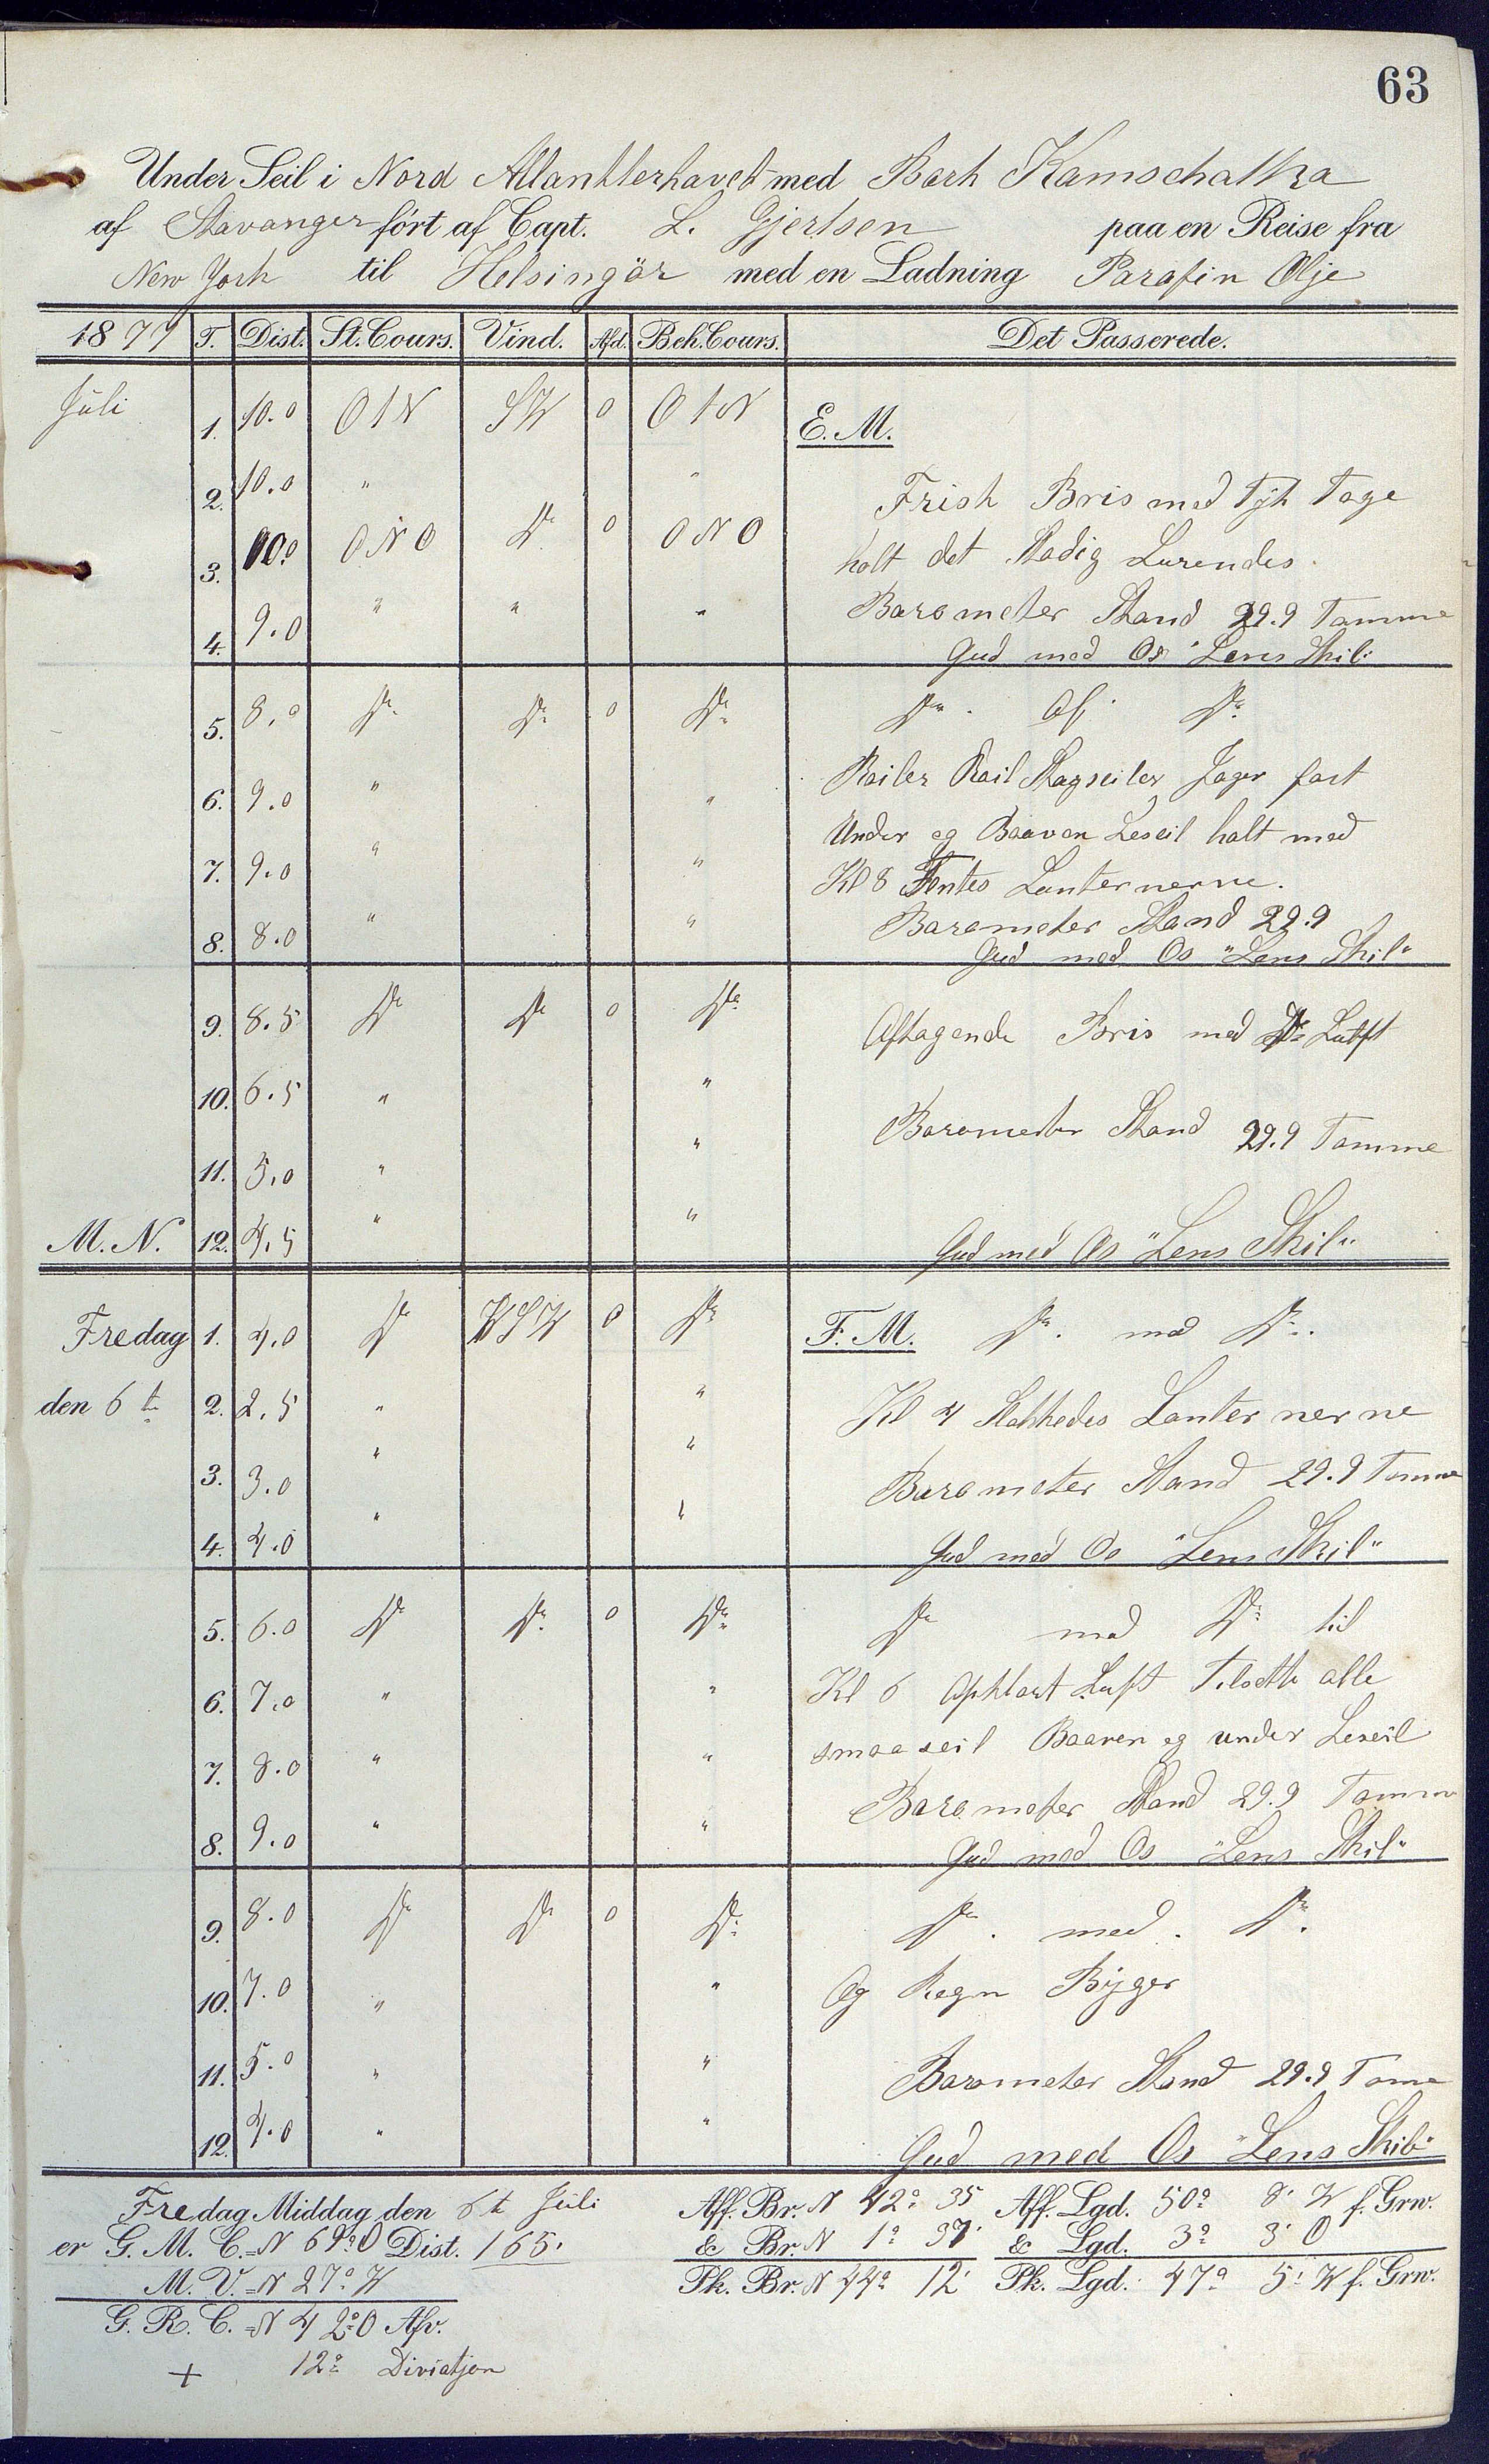 63
Under Seil i Nord Atlantterhavet med Bark Kamschatka
af Stavanger ført af Capt. L. Gjertsen paa en Reise fra
New York til Helsingör med en Ladning Parafin Olje
1877 T. Dist. St. Cours. Vind. Afd. Beh. Cours. Det Passerede.
Juli 1. 10.0 O t N SW 0 O t N E. M.
2. 10.0 " " Frish Bris med Tyk Tage
3. 10.0 ONO Do 0 ONO holt det Stadig Lurendes.
4. 9.0 " " " Barometer Stand 29.9 Tomme
Gud med Os "Lens Skib"
5. 8.0 Do Do 0 Do Do Af Do
6. 9.0 " " Roiler Roil Stagseiler Jager fast
7. 9.0 " " Under og Baaven Leseil halt med
Kl 8 Tentes Lanternerne.
8. 8.0 " " Barometer Stand 29.9
Gud med Os "Lens Skib"
9. 8.5 Do Do 0 Do Aftagende Bris med Do Luft
10. 6.5 " "
11. 5.0 " " Barometer Stand 29.9 Tomme
M. N. 12. 4.5 " " Gud med Os "Lens Skib"
Fredag 1. 4.0 Do WSW 0 Do F. M. Do med Do
den 6te 2. 2.5 " " Kl 4 Slokkedes Lanternerne
3. 3.0 " " Barometer Stand 29.9 Tomme
4. 4.0 " " Gud med Os "Lens Skib"
5. 6.0 Do Do 0 Do Do med Do til
6. 7.0 " " Kl 6 Opklart Luft Tilsatte alle
7. 8.0 " " smaaseil Baaven og under Leseil
Barometer Stand 29.9 Tomme
8. 9.0 " " Gud med Os "Lens Skib"
9. 8.0 Do Do 0 Do Do med Do
10. 7.0 " " Og Regn Byger
11. 5.0 " " Barometer Stand 29.9 Tome
12. 4.0 " " Gud med Os "Lens Skib"
Fredag Middag den 6te Juli Aff. Br. N 42° 35 Aff. Lgd. 50° 8' W f. Grw.
er G. M. C. = N 69° O Dist. 165' & Br. N 1° 37' & Lgd. 3° 3' O
M. V. = N 27° W Pk. Br. N 44° 12' Pk. Lgd. 47° 5' W f. Grw.
G. R. C. = N 42° O Afv.
+ 12° Diviatjon